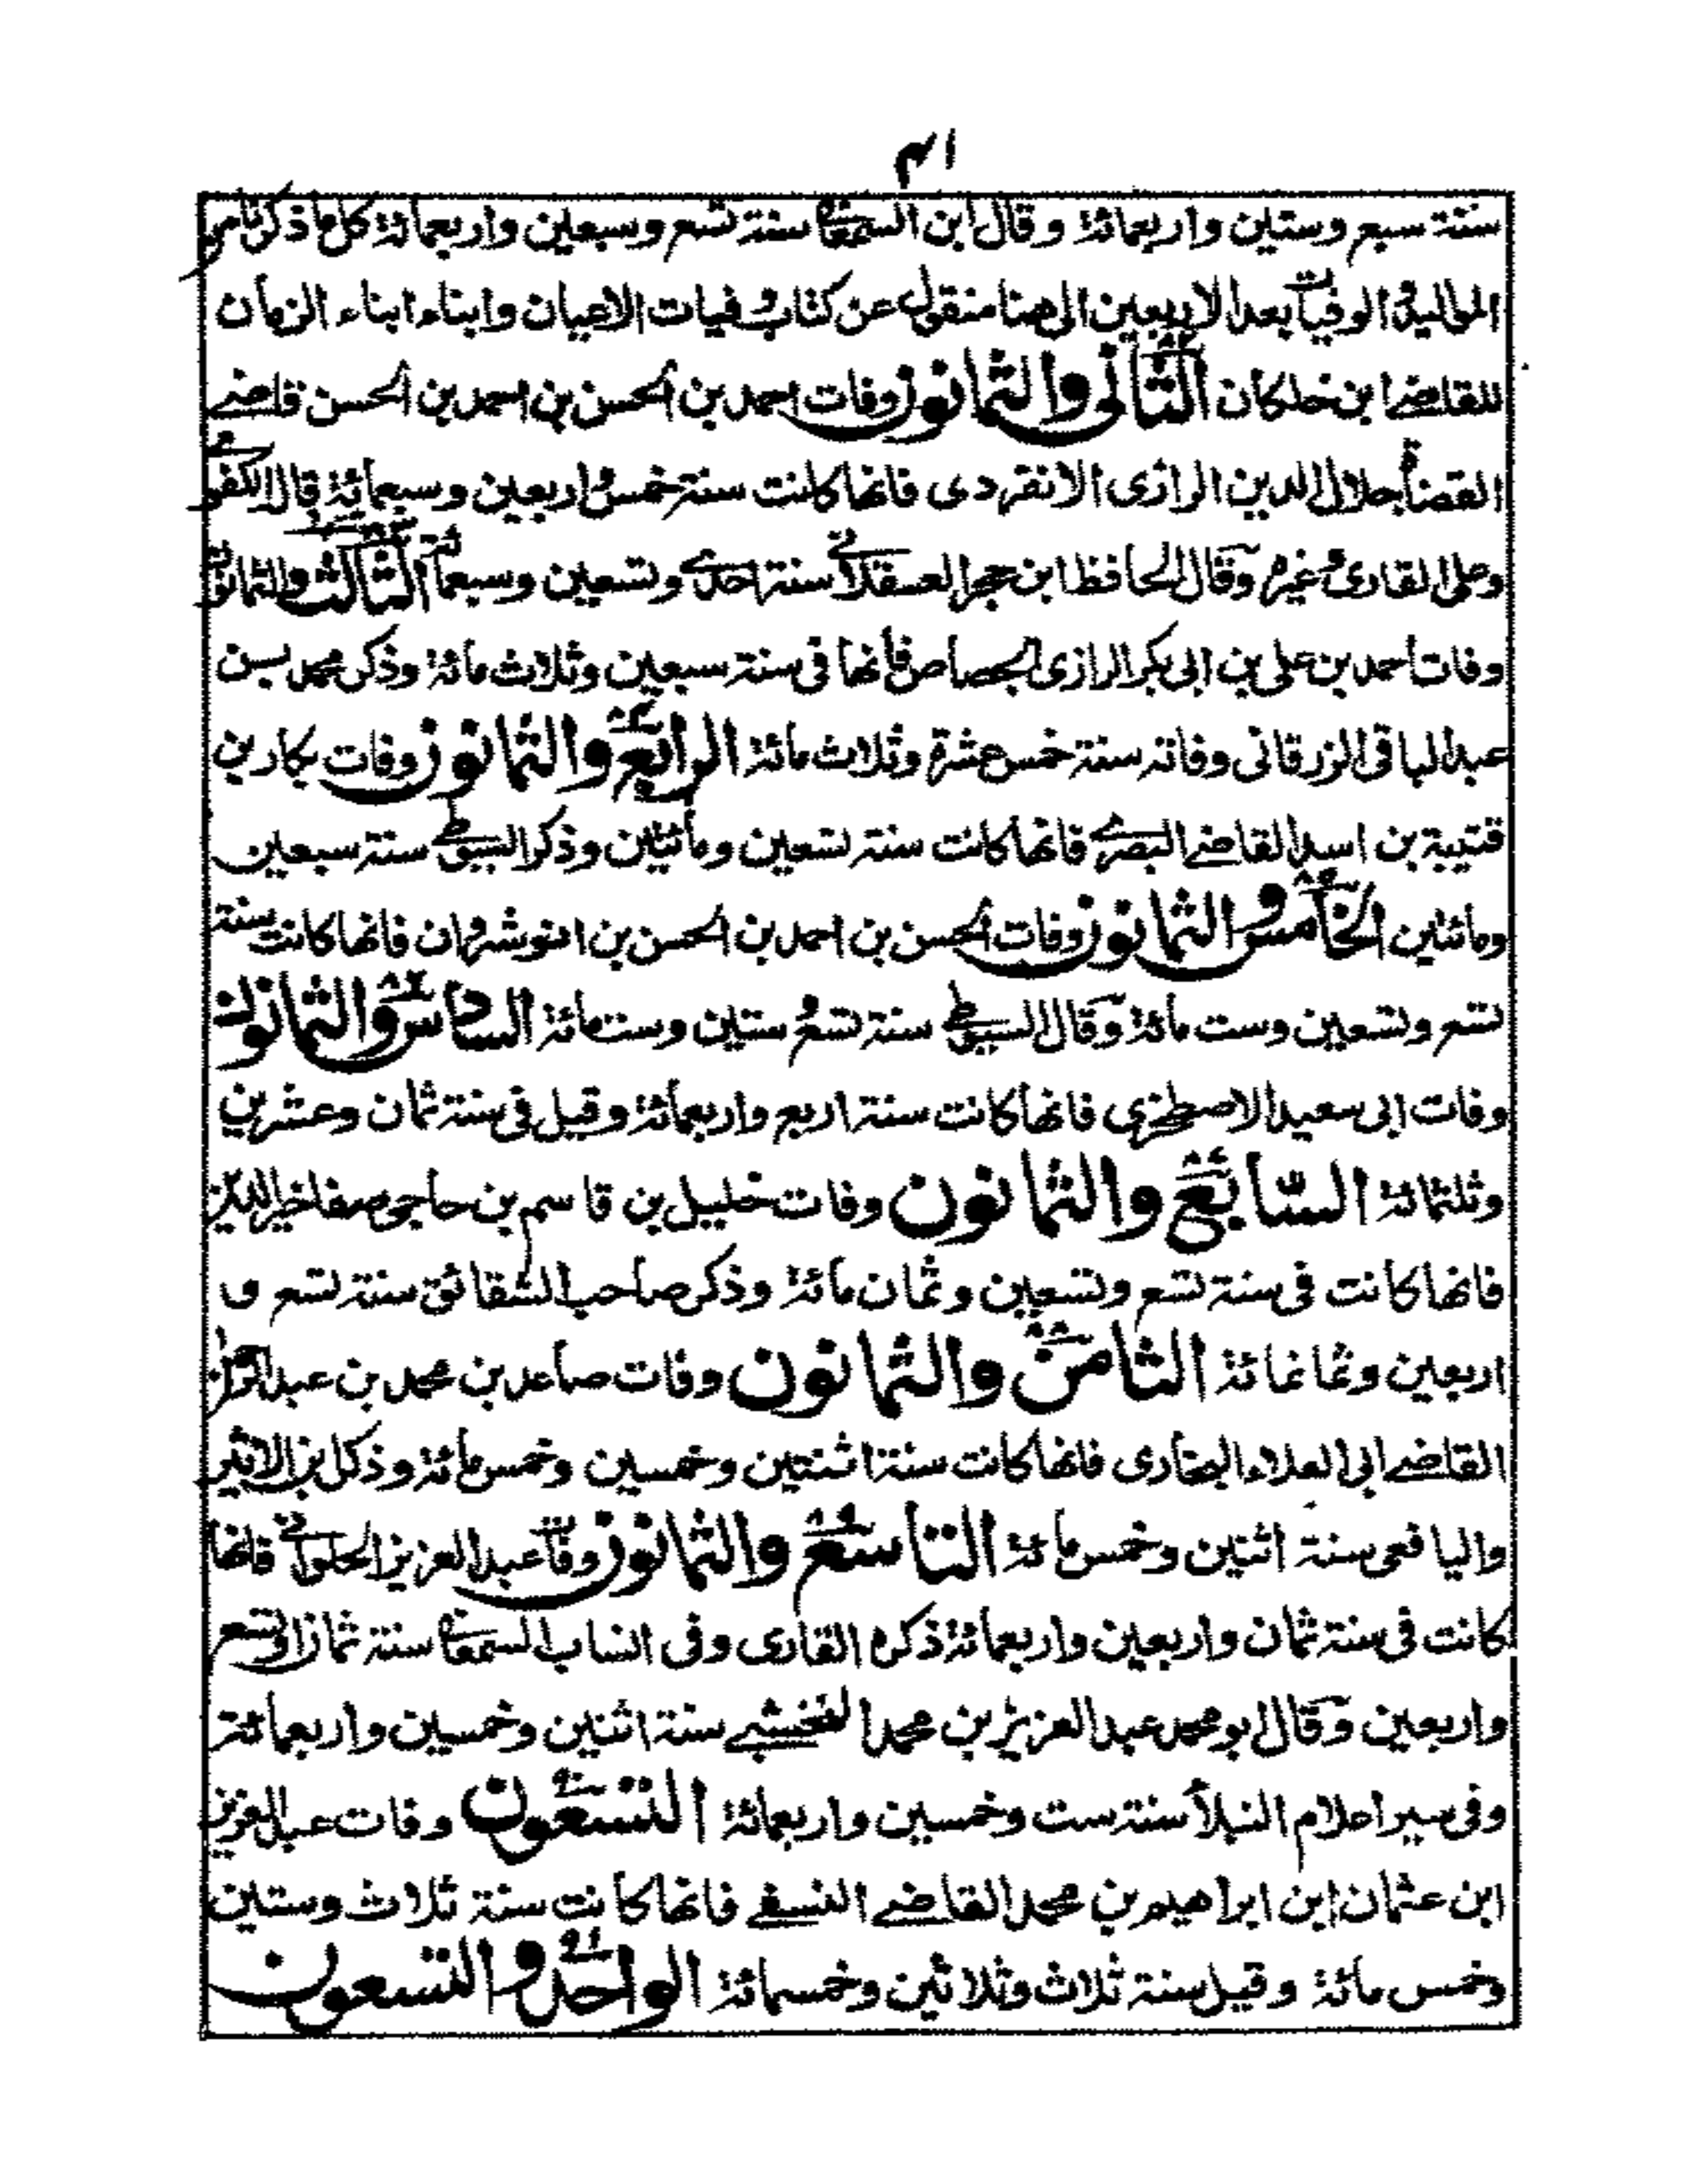 ۴۱
سنة سبع وستين واربعمائة وقال ابن السمعانی سنة تسع وسبعين واربعمائة كل ما ذكرنا من
المواليد والوفيات بعد الاربعين الى هنا منقول عن كتاب وفيات الاعيان وابناء ابناء الزمان
للقاضے ابن خلكان الثانی والثمانون وفات احمد بن الحسن بن احمد بن الحسن قاضے
القضاة جلال الدين الرازی الانقردی فانها كانت سنة خمس واربعين وسبعمائة قال الكفوے
وعلی القاری وغيره وقال الحافظ ابن حجر العسقلانے سنة احدے وتسعين وسبعمائة الثالث والثمانون
وفات احمد بن علی بن ابی بكر الرازی الجصاص فانها فی سنة سبعين وثلاث مائة وذكر محمد بن
عبد الباقی الزرقانی وفاته سنة خمس عشرة وثلاث مائة الرابع والثمانون وفات بكار بن
قتيبة بن اسد القاضے البصرے فانها كانت سنة تسعين ومائتين وذكر السيوطے سنة سبعين
ومائتين الخامس والثمانون وفات الحسن بن احمد بن الحسن بن انوشروان فانها كانت سنة
تسع وتسعين وست مائة وقال السيوطے سنة تسع وستين وستمائة السادس والثمانون
وفات ابی سعيد الاصطخری فانها كانت سنة اربع واربعمائة وقيل فی سنة ثمان وعشرين
وثلثمائة السابع والثمانون وفات خليل بن قاسم بن حاجی صفا خير الدين
فانها كانت فی سنة تسع وتسعين وثمان مائة وذكر صاحب الشقائق سنة تسع و
اربعين وثمانمائة الثامن والثمانون وفات صاعد بن محمد بن عبد الرحمن
القاضے ابی العلاء البخاری فانها كانت سنة اثنتين وخمسين وخمس مائة وذكر ابن الاثير
واليافعی سنة اثنين وخمس مائة التاسع والثمانون وفات عبد العزيز الحلوانے فانها
كانت فی سنة ثمان واربعين واربعمائة ذكره القاری وفی انساب السمعانی سنة ثمان او تسع
واربعين وقال ابو محمد عبد العزيز بن محمد النخشبے سنة اثنين وخمسين واربعمائة
وفی سير اعلام النبلاء سنة ست وخمسين واربعمائة التسعون وفات عبد العزيز
ابن عثمان ابن ابراهيم بن محمد القاضے النسفے فانها كانت سنة ثلاث وستين
وخمس مائة وقيل سنة ثلاث وثلاثين وخمسمائة الواحد والتسعون